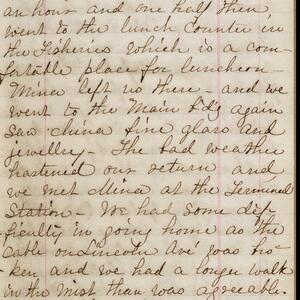 an hour and one half then
went to the lunch counter in
the Fisheries which is a com-
fortable place for luncheon -
Mina left us there - and we
went to the Main Bld'g again
saw china fine glass and
jewelry - The bad weather
hastened our return and
we met Mina at the Terminal
Station - We had some dif-
ficulty in going home as the
Cable on Lincoln Ave' was bro-
ken and we had a longer walk
in the mist than was agreeable.